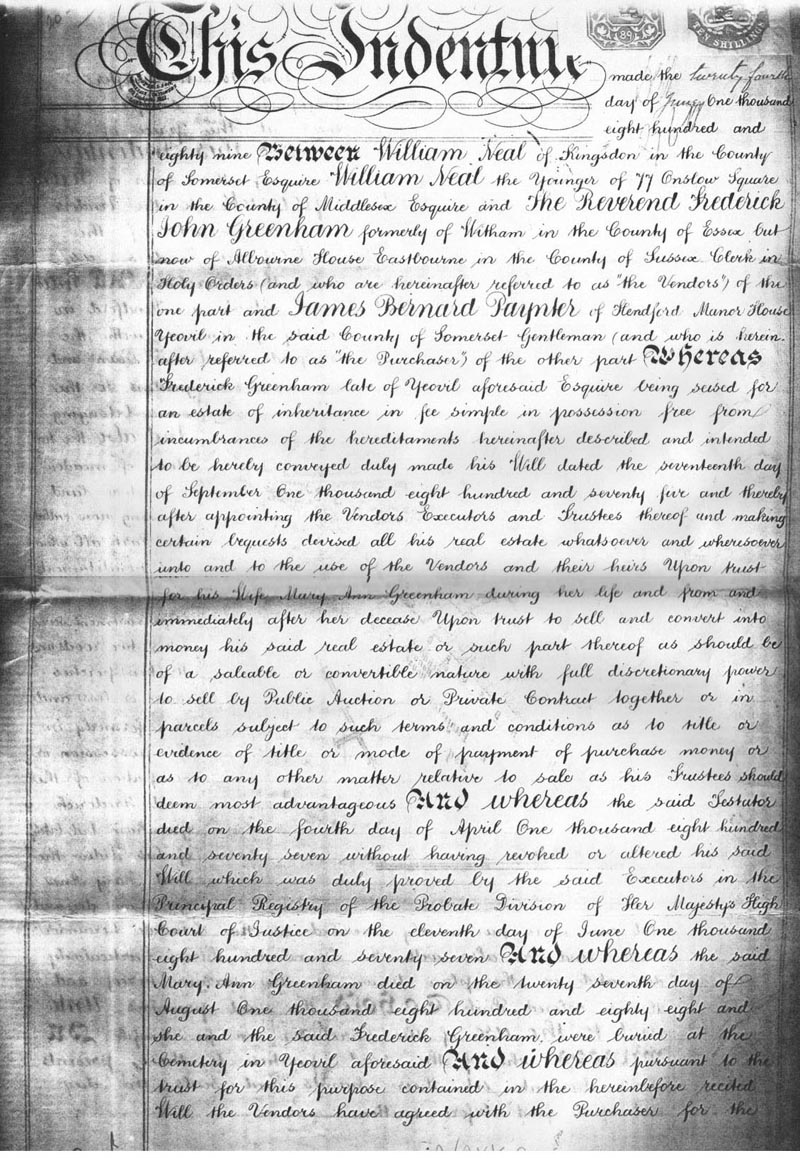 This Indenture
TEN SHILLINGS
made the twenty fourth
day of One thousand
eight hundred and
eighty nine Between William Neal of Kingsdon in the County
of Somerset Esquire William Neal the Younger of 77 Onslow Square
in the County of Middlesex Esquire and The Reverend Frederick
John Greenham formerly of Witham in the County of Essex but
now of Albourne House Eastbourne in the County of Sussex Clerk in
Holy Orders (and who are hereinafter referred to as "the Vendors") of the
one part and James Bernard Paynter of Hendford Manor House
Yeovil in the said County of Somerset Gentleman (and who is herein-
after referred to as "the Purchaser") of the other part Whereas
Frederick Greenham late of Yeovil aforesaid Esquire being seised for
an estate of inheritance in fee simple in possession free from
incumbrances of the hereditaments hereinafter described and intended
to be hereby conveyed duly made his Will dated the seventeenth day
of September One thousand eight hundred and seventy five and thereby
after appointing the Vendors Executors and Trustees thereof and making
certain bequests devised all his real estate whatsoever and wheresoever
unto and to the use of the Vendors and their heirs Upon trust
for his Wife Mary Ann Greenham during her life and from and
immediately after her decease Upon trust to sell and convert into
money his said real estate or such part thereof as should be
of a saleable or convertible nature with full discretionary power
to sell by Public Auction or Private Contract together or in
parcels subject to such terms and conditions as to title or
evidence of title or mode of payment of purchase money or
as to any other matter relative to sale as his Trustees should
deem most advantageous And whereas the said Testator
died on the fourth day of April One thousand eight hundred
and seventy seven without having revoked or altered his said
Will which was duly proved by the said Executors in the
Principal Registry of the Probate Division of Her Majesty's High
Court of Justice on the eleventh day of June One thousand
eight hundred and seventy seven And whereas the said
Mary Ann Greenham died on the twenty seventh day of
August One thousand eight hundred and eighty eight and
she and the said Frederick Greenham were buried at the
Cemetery in Yeovil aforesaid And whereas pursuant to the
trust for this purpose contained in the hereinbefore recited
Will the Vendors have agreed with the Purchaser for the